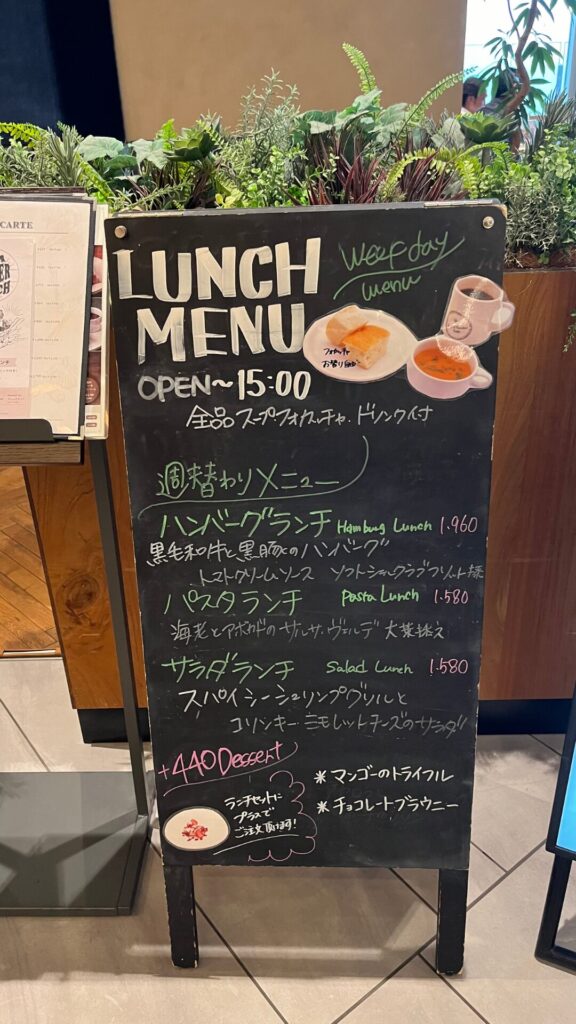 CARTE
LUNCH
MENU
Weekday
menu
フォカッチャ
お替り自由
OPEN~15:00
全品スープ・フォカッチャ・ドリンク付
週替わりメニュー
ハンバーグランチ Hamburg Lunch 1.960
黒毛和牛と黒豚とのハンバーグ
トマトクリームソース ソフトシェルクラブフリット添
パスタランチ Pasta Lunch 1.580
海老とアボカドのサルサ・ヴェルデ 大葉添え
サラダランチ Salad Lunch 1.580
スパイシーシュリンプグリルと
コリンキー ミモレットチーズのサラダ
+440 Dessert
ランチセットに
プラスで
ご注文頂けます!
*マンゴーのトライフル
*チョコレートブラウニー